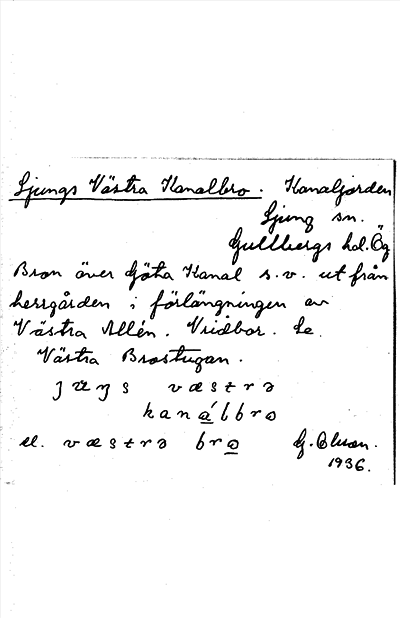 Ljungs Västra Kanalbro. Kanaljorden
Ljung sn.
Gullbergs hd. Ög
Bron över Göta Kanal s.v. ut från
herrgården i förlängningen av
Västra Allén. Vridbar. Se
Västra Brostugan.
væstrə
kanálbro
el. væstrə bro G. Olson.
1936.